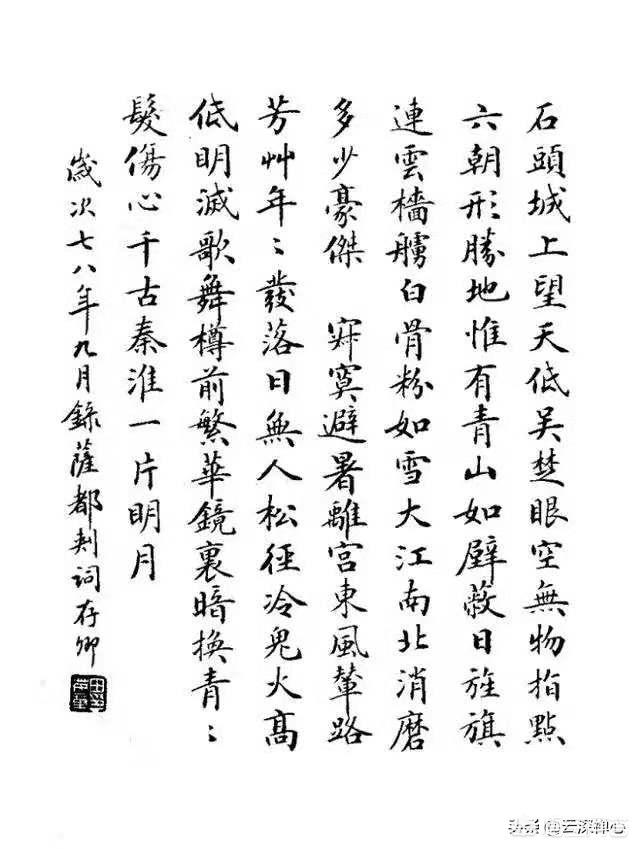 石頭城上望天低吳楚眼空無物指點
六朝形勝地惟有青山如壁蔽日旌旗
連雲檣艣白骨粉如雪大江南北消磨
多少豪傑　寂寞避暑離宮東風輦路
芳艸年〻發落日無人松徑冷鬼火高
低明滅歌舞樽前繁華鏡裏暗換青〻
髮傷心千古秦淮一片明月
歲次七八年九月錄薩都剌詞存卿
头条 @云深禅心